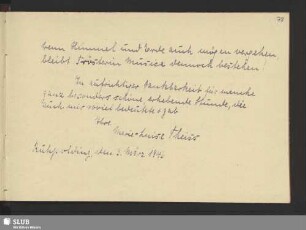 78
wenn Himmel und Erde auch mögen vergehen
bleibt Frau Musica dennoch bestehen!
In aufrichtiger Dankbarkeit für manche
ganz besonders schöne, erhebende Stunde, die
mir soviel bedeutete
Ihre
Marie-Luise
den 3. März 1946
SLUB